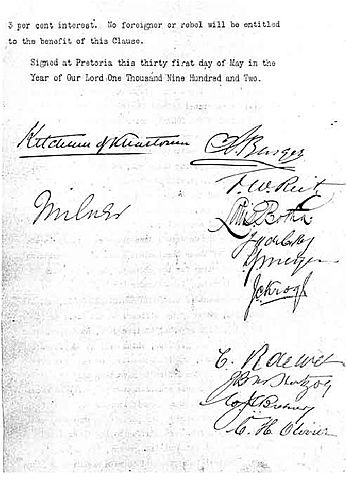 3 per cent interest. No foreigner or rebel will be entitled
to the benefit of this Clause.
Signed at Pretoria this thirty first day of May in the
Year of Our Lord One Thousand Nine Hundred and Two.
Kitchener of Khartoum
S. W. Burger
F. W. Reitz
Milner
Louis Botha
J. C. Krogh
C. R de Wet
J B M Hertzog
C. H. Olivier